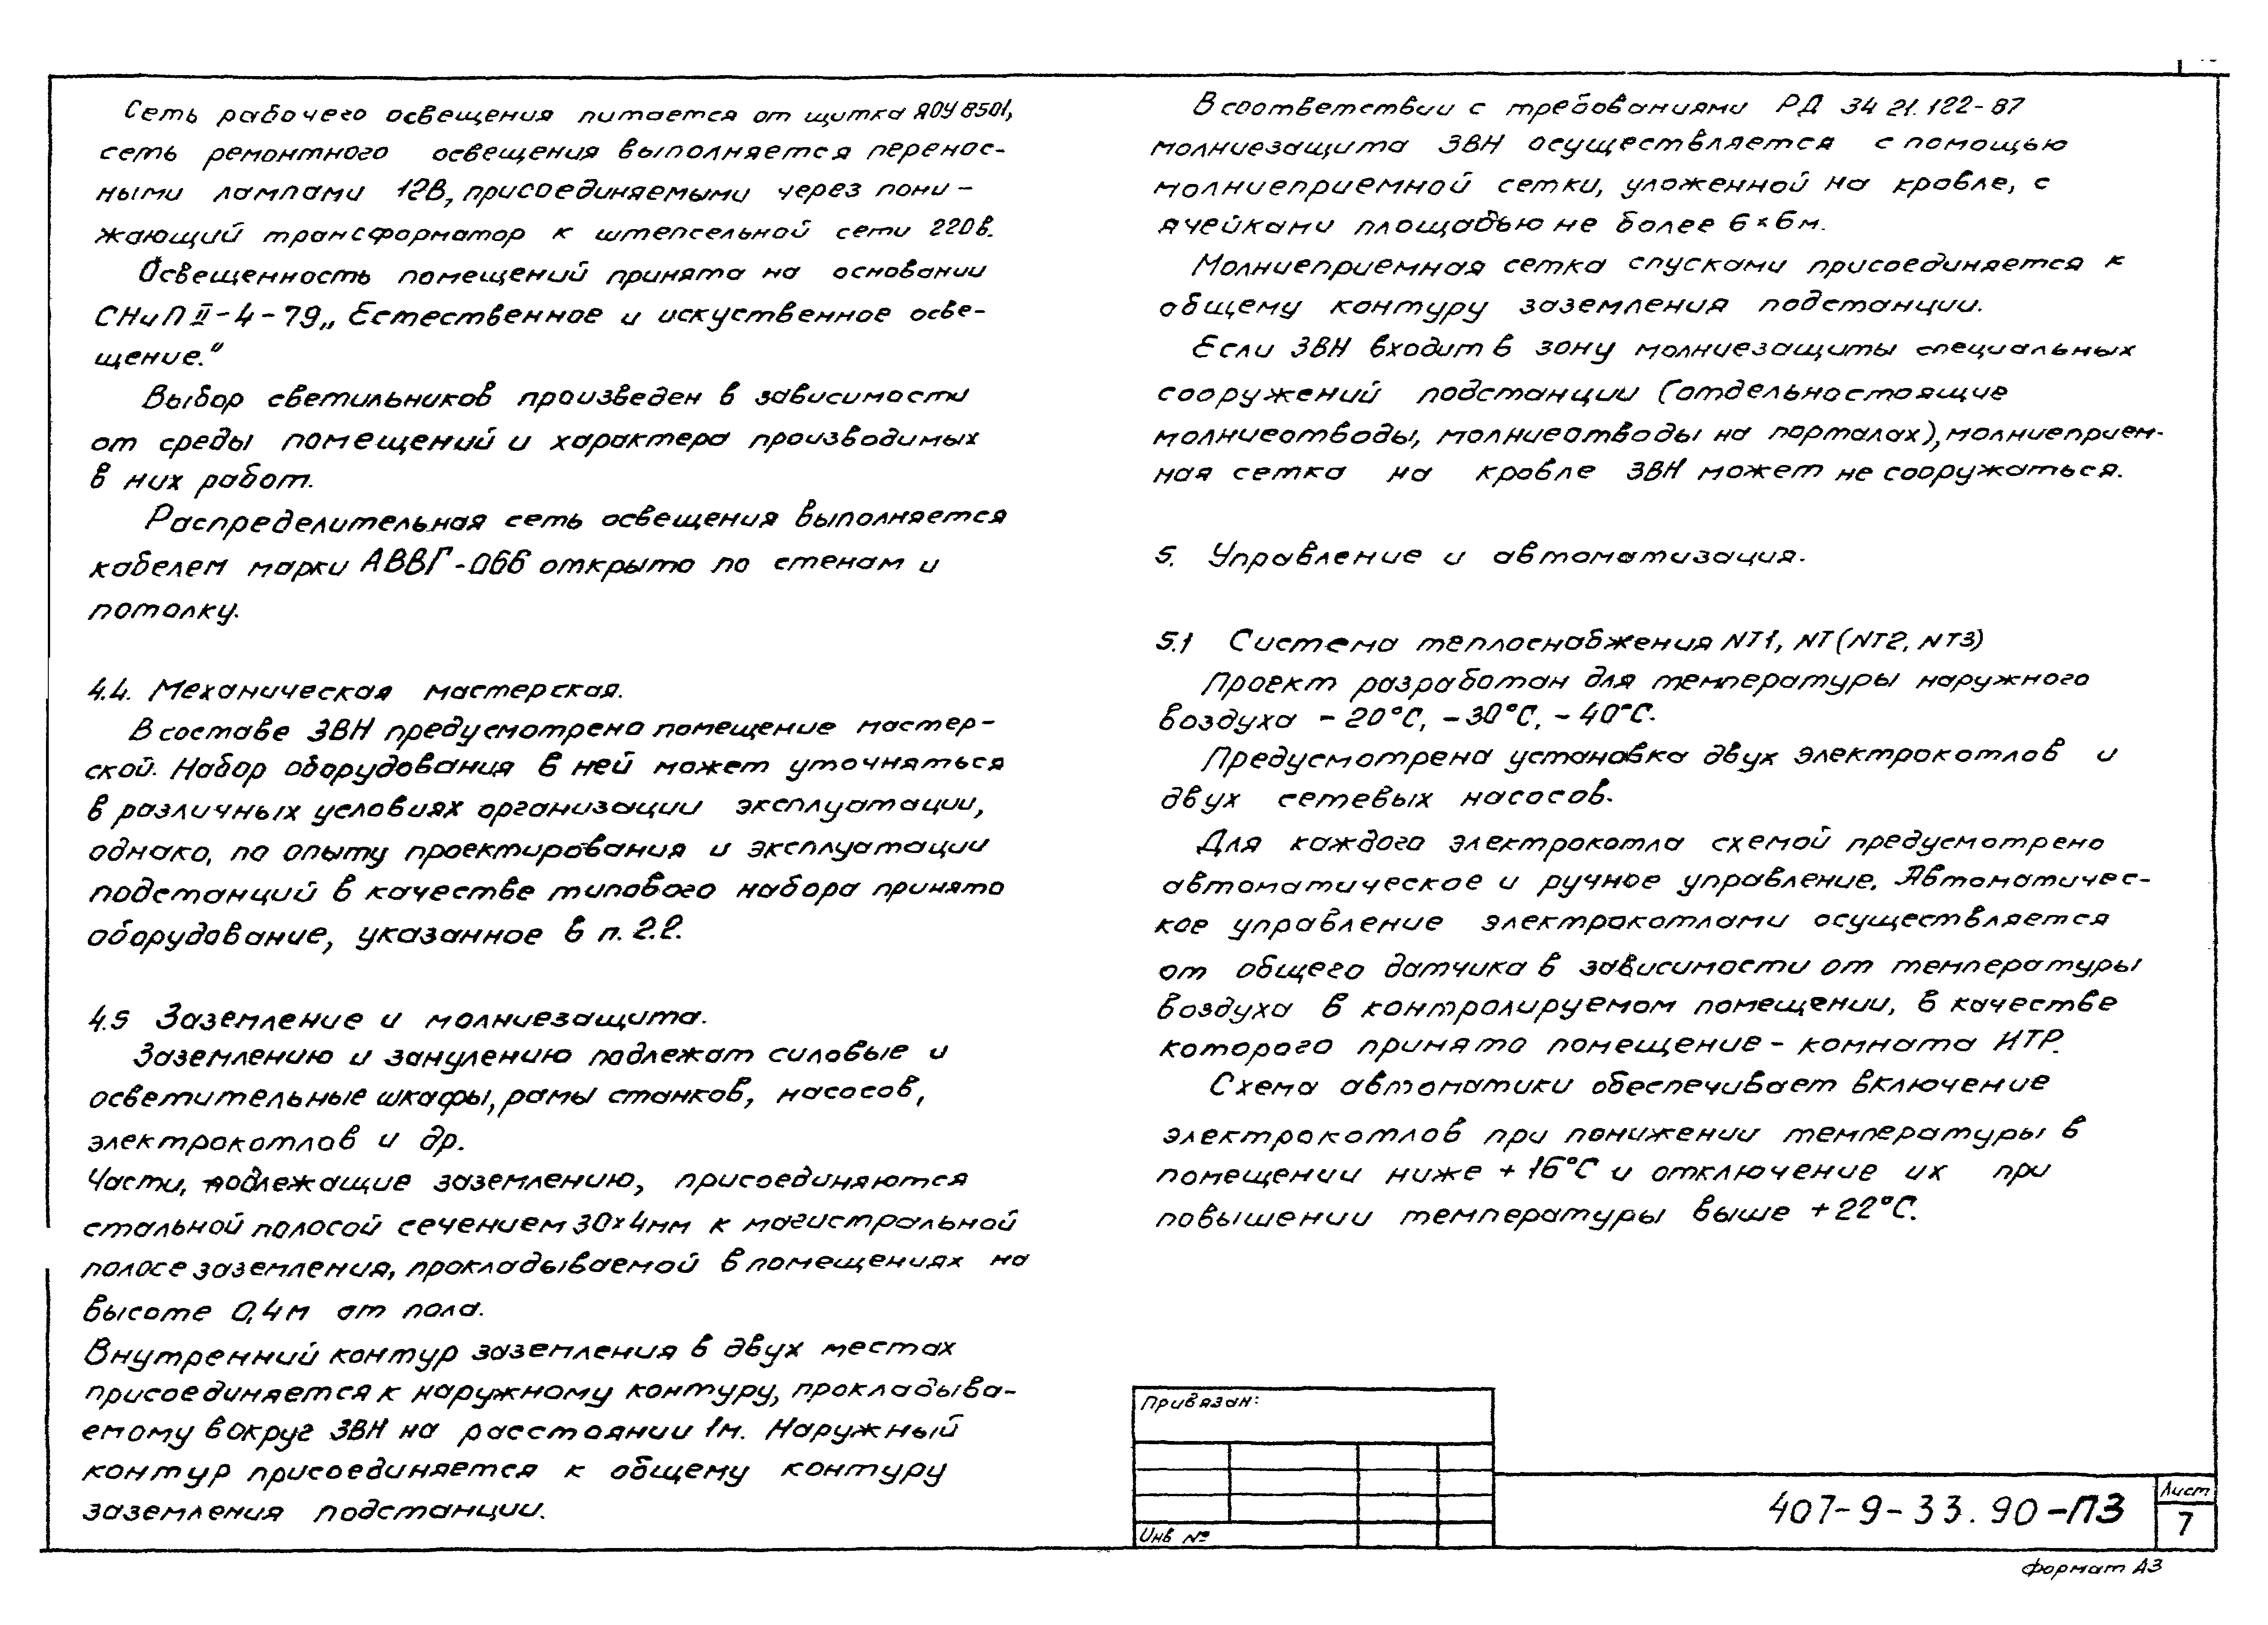 Сеть рабочего освещения питается от щитка ЯОУ 8501,
сеть ремонтного освещения выполняется перенос-
ными лампами 12В, присоединяемыми через пони-
жающий трансформатор к штепсельной сети 220в.
Освещенность помещений принята на основании
СНиП II-4-79 „Естественное и искуственное осве-
щение."
Выбор светильников произведен в зависимости
от среды помещений и характера производимых
в них работ.
Распределительная сеть освещения выполняется
кабелем марки АВВГ-066 открыто по стенам и
потолку.
4.4. Механическая мастерская.
В составе ЗВН предусмотрено помещение мастер-
ской. Набор оборудования в ней может уточняться
в различных условиях организации эксплуатации,
однако, по опыту проектирования и эксплуатации
подстанций в качестве типового набора принято
оборудование, указанное в п. 2.2.
4.5 Заземление и молниезащита.
Заземлению и занулению подлежат силовые и
осветительные шкафы, рамы станков, насосов,
электрокотлов и др.
Части, подлежащие заземлению, присоединяются
стальной полосой сечением 30×4мм к магистральной
полосе заземления, прокладываемой в помещениях на
высоте 0,4м от пола.
Внутренний контур заземления в двух местах
присоединяется к наружному контуру, прокладыва-
емому вокруг ЗВН на расстоянии 1м. Наружный
контур присоединяется к общему контуру
заземления подстанции.
В соответствии с требованиями РД 34 21.122-87
молниезащита ЗВН осуществляется с помощью
молниеприемной сетки, уложенной на кровле, с
ячейками площадью не более 6×6м.
Молниеприемная сетка спусками присоединяется к
общему контуру заземления подстанции.
Если ЗВН входит в зону молниезащиты специальных
сооружений подстанции (отдельностоящие
молниеотводы, молниеотводы на порталах), молниеприем-
ная сетка на кровле ЗВН может не сооружаться.
5. Управление и автоматизация.
5.1 Система теплоснабжения NT1, NT (NT2, NT3)
Проект разработан для температуры наружного
воздуха -20°С, -30°С, -40°С.
Предусмотрена установка двух электрокотлов и
двух сетевых насосов.
Для каждого электрокотла схемой предусмотрено
автоматическое и ручное управление. Автоматичес-
кое управление электрокотлами осуществляется
от общего датчика в зависимости от температуры
воздуха в контролируемом помещении, в качестве
которого принято помещение - комната ИТР.
Схема автоматики обеспечивает включение
электрокотлов при понижении температуры в
помещении ниже +16°С и отключение их при
повышении температуры выше +22°С.
Привязан:
Инв №
407-9-33.90-ПЗ
Лист
7
Формат А3